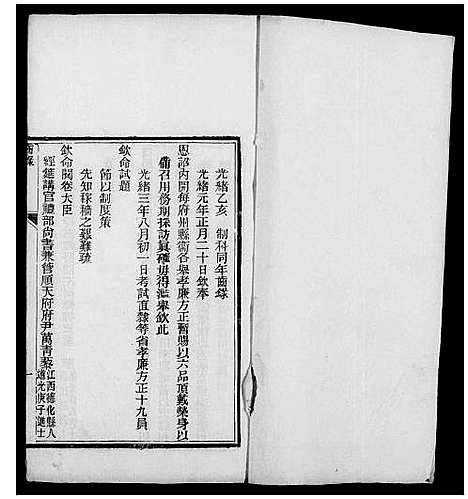 光緒乙亥　制科同年齒錄
光緒元年正月二十日欽奉
恩詔內開每府州縣衞各舉孝廉方正暫賜以六品頂戴榮身以
備召用務期採訪真確毋得濫舉欽此
光緒三年八月初一日考試直隸等省孝廉方正十九員
欽命試題
節以制度策
先知稼穡之艱難疏
欽命閱卷大臣
經筵講官禮部尚書兼管順天府府尹萬青藜
江西德化縣人
道光庚子進士
齒錄
一